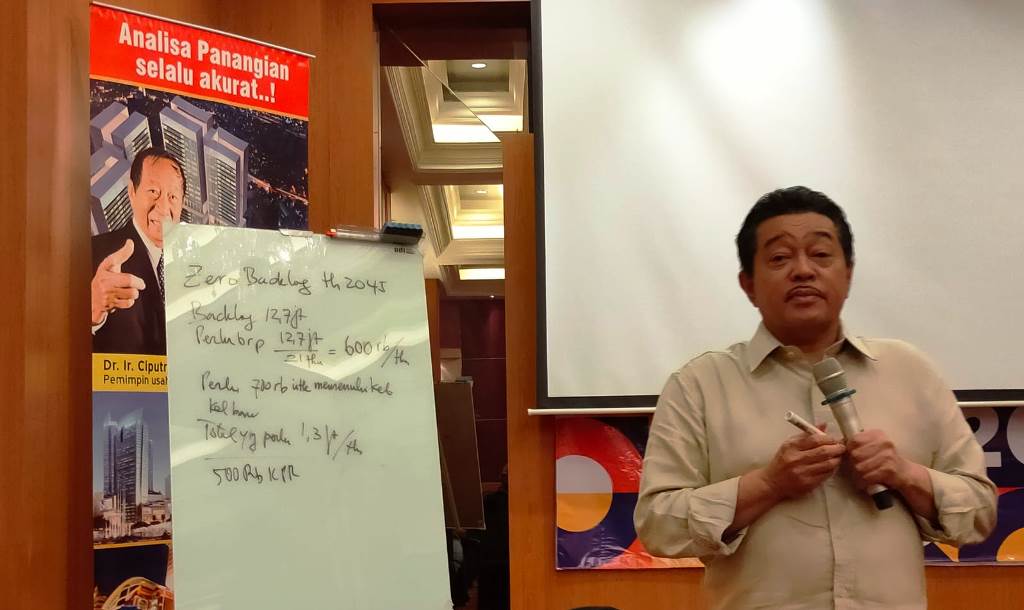 Analisa Panangian
selalu akurat..!
Dr. Ir. Ciputr
Pemimpin usah
Zero Backlog th 2045
Backlog 12,7 jt
Perlu brp 12,7 jt / 21 thn = 600 rb/th
Perlu 700 rb utk memenuhi keb
kel baru
Total yg perlu 1,3 jt/th
500 Rb KPR
20